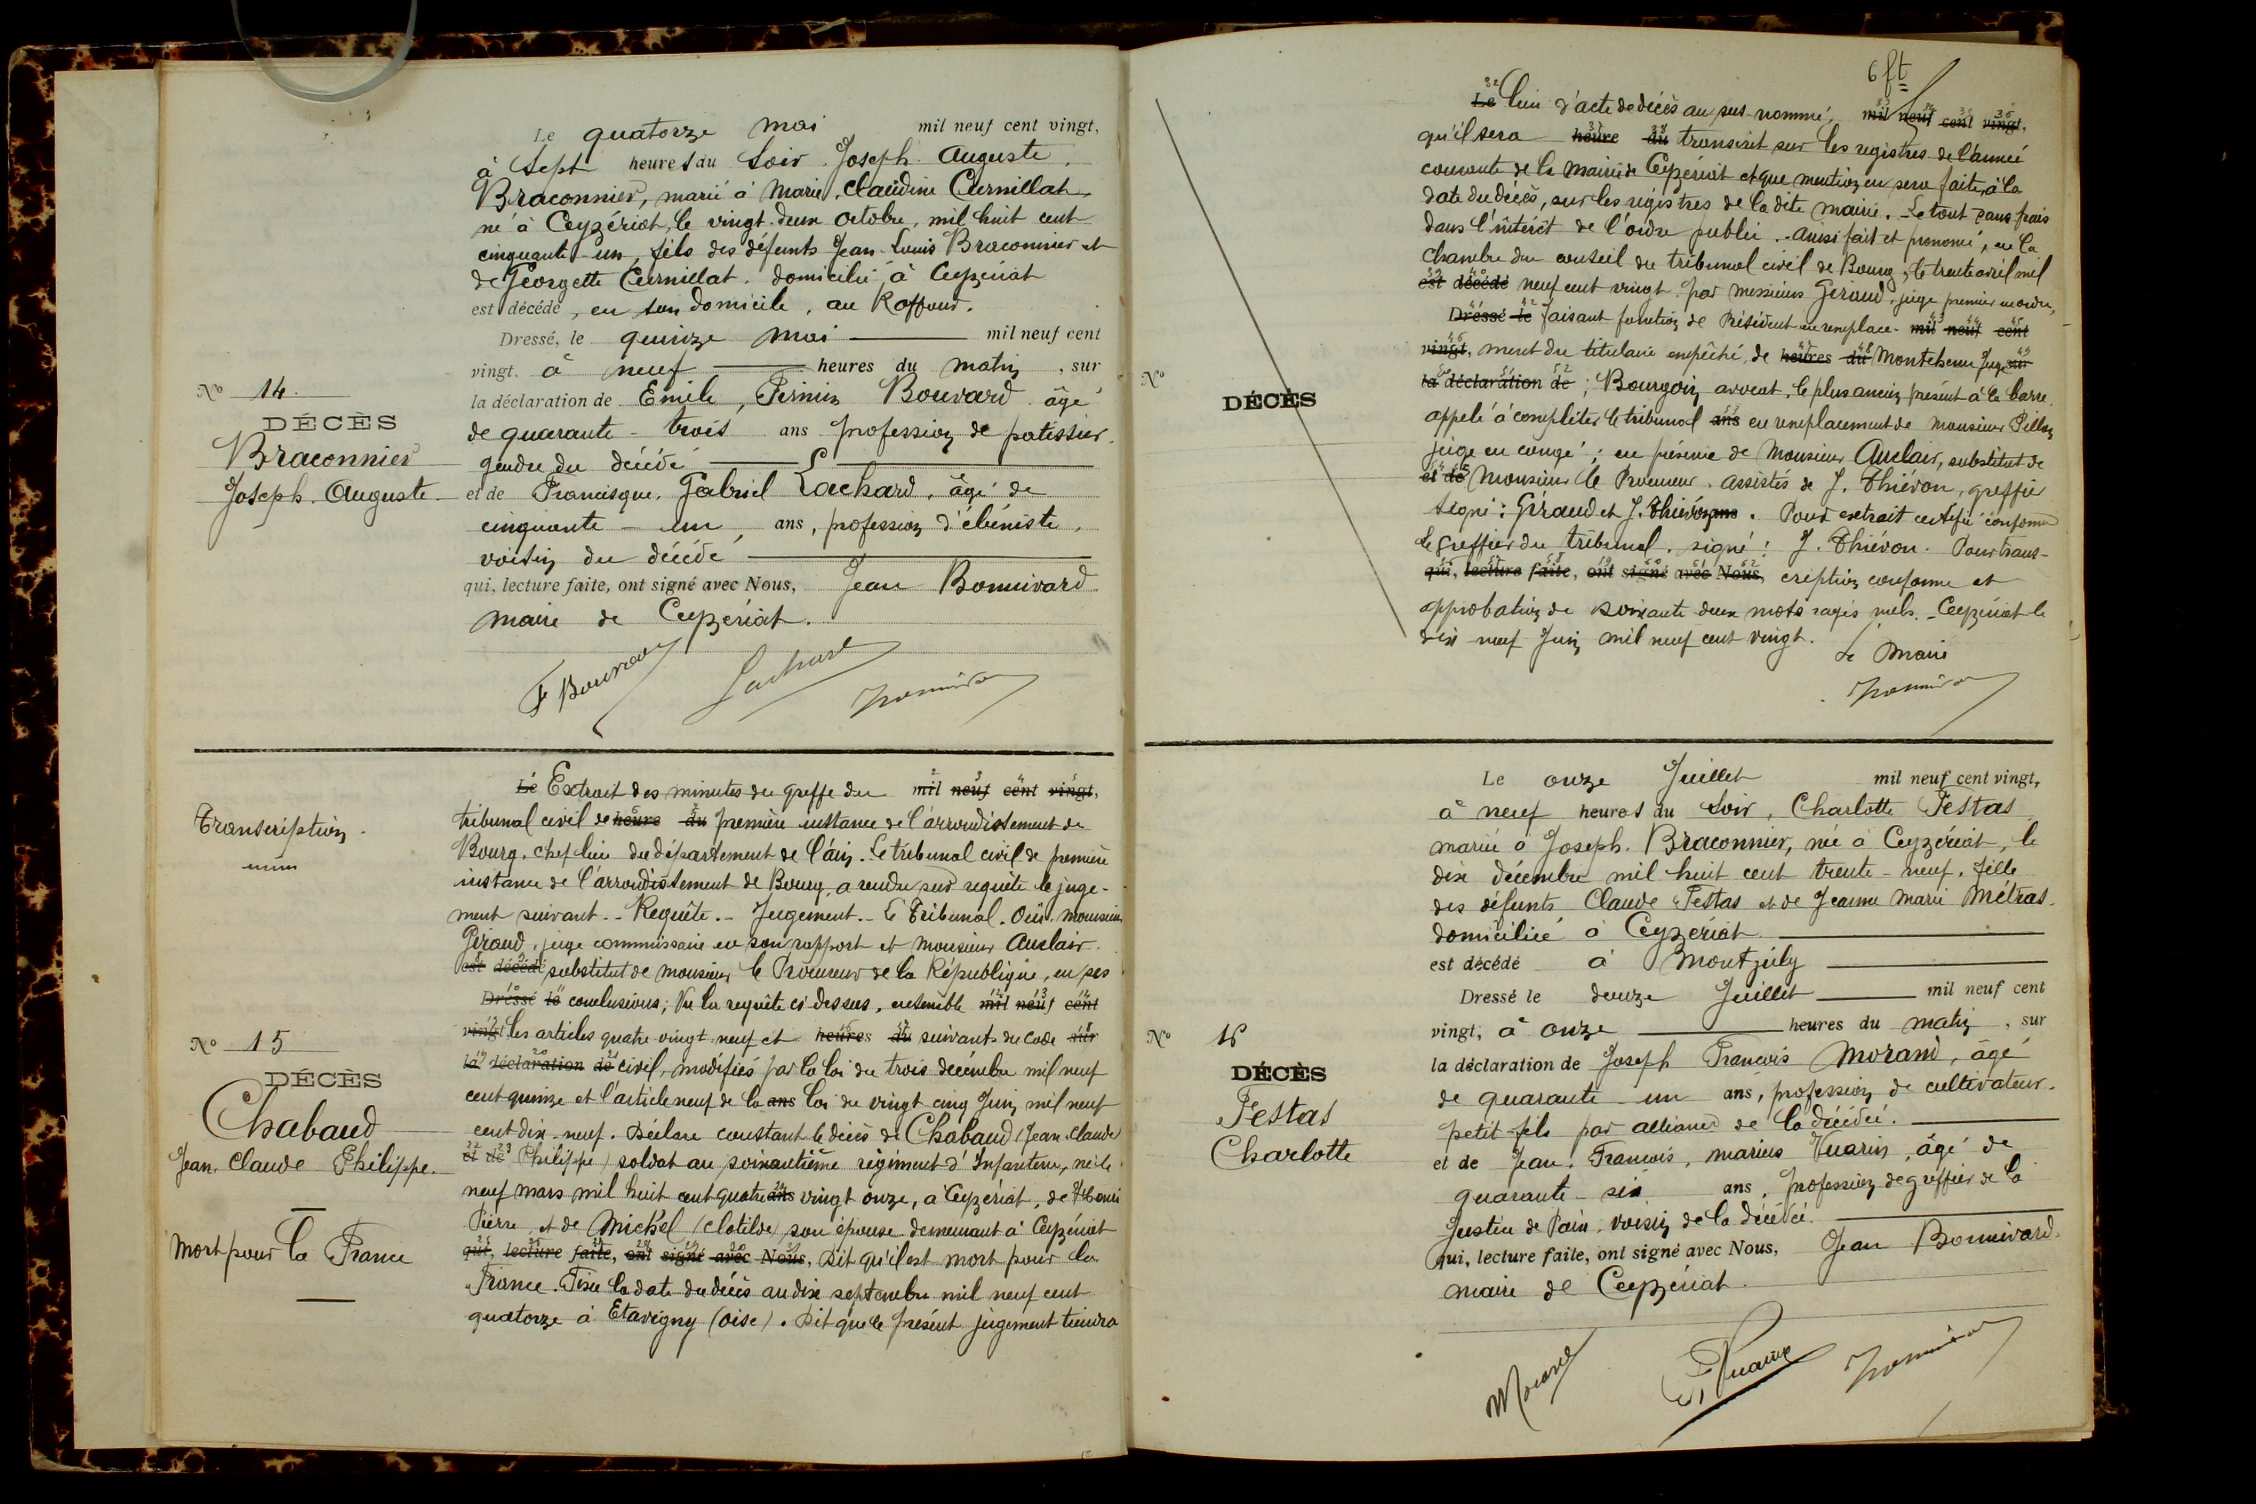 Le quatorze mai mil neuf cent vingt,
à sept heures du soir Joseph Auguste
Braconnier, marié à Marie Claudine Curnillat
né à Ceyzériat, le vingt deux octobre, mil huit cent
cinquante-un, fils des défunts Jean Louis Braconnier et
de Georgette Curnillat. domicilié à Ceyzériat
est décédé, en son domicile, au
Dressé, le quinze mai mil neuf cent
vingt. à neuf heures du matin, sur
la déclaration de Emile, Firmin Bouvard âgé
de quarante-trois ans profession de patissier.
gendre du décédé
et de Francisque, Gabriel Lachard, âgé de
cinquante-un ans, profession d'ébéniste,
voisin du décédé
qui, lecture faite, ont signé avec Nous, Jean Bonnivard
maire de Ceyzériat.
N° 14.
DÉCÈS
Braconnier
Joseph. Auguste.
Transcription
N° 15
DÉCÈS
Chabaud
Jean, Claude Philippe.
Mort pour la France
Le Extrait des minutes du greffe du mil neuf cent vingt,
tribunal civil de heure du première instance de l'arrondissement de
Bourg, chef lieu du département de l'Ain. Le tribunal civil de première
instance de l'arrondissement de Bourg, a rendu sur requête le juge-
ment suivant.- Requête.- Jugement.- Le Tribunal. Ouï, monsieur
Giraud, juge commissaire en son rapport et monsieur Auclair
est décédé substitut de monsieur le Procureur de la République, en ses
Dressé le conclusions; Vu la requête ci-dessus, ensemble mil neuf cent
vingt les articles quatre vingt neuf et heures du suivants du code sur
la déclaration de civil, modifiés par la loi du trois décembre mil neuf
cent quinze et l'article neuf de la ans loi du vingt cinq Juin mil neuf
cent dix-neuf. Déclare constant le décès de Chabaud (Jean, Claude
et de Philippe) soldat au soixantième régiment d'Infanterie, né le
neuf mars mil huit cent quatre ans vingt onze, à Ceyzériat, de Henri
Pierre et de Michel (Clotilde) son épouse demeurant à Ceyzériat
qui, lecture faite, ont signé avec Nous, Dit qu'il est mort pour la
France. Fixe la date du décès au dix septembre mil neuf cent
quatorze à Etavigny (Oise). Dit que le présent jugement tiendra
6 ft
Le lieu d'acte de décès au sus-nommé, mil neuf cent vingt,
qu'il sera heure du transcrit sur les registres de l'année
courante de la mairie de Ceyzériat et que mention en sera faite, à la
date du décès, sur les registres de la dite mairie. Le tout sans frais
dans l'intérêt de l'ordre public. Ainsi fait et prononcé, en la
chambre du conseil du tribunal civil de Bourg, le trente avril mil
est décédé neuf cent vingt par messieurs Giraud, juge premier en ordre,
Dressé le faisant fonction de Président en remplace- mil neuf cent
vingt, ment du titulaire empêché, de heures du Juge sur
la déclaration de; Bourgoin avocat, le plus ancien présent à la barre
appelé à compléter le tribunal ans en remplacement de monsieur
juge en congé; en présence de Monsieur Auclair, substitut de
et de Monsieur le Procureur. assistés de J. Thiévon, greffier
Signé: Giraud et J. Thiévon ans. Pour extrait certifié conforme
Le Greffier du tribunal. signé: J. Thiévon. Pour trans-
qui, lecture faite, ont signé avec Nous, cription conforme et
approbation de soixante deux mots rayés nuls. Ceyzériat le
dix neuf Juin mil neuf cent vingt.
Le Maire
N°
DÉCÈS
Le onze Juillet mil neuf cent vingt,
à neuf heures du soir, Charlotte Festas
mariée à Joseph. Braconnier, née à Ceyzériat, le
dix décembre mil huit cent trente-neuf, fille
des défunts Claude Festas et de Jeanne Marie Métras.
domiciliée à Ceyzériat
est décédé à Montjuly
Dressé le douze Juillet mil neuf cent
vingt, à onze heures du matin, sur
la déclaration de Joseph François Morand, âgé
de quarante-un ans, profession de cultivateur.
petit-fils par alliance de la décédée.
et de Jean, François, Marius Vuarin, âgé de
quarante-six ans, profession de greffier de la
Justice de Paix, voisin de la décédée.
qui, lecture faite, ont signé avec Nous, Jean Bonnivard.
maire de Ceyzériat.
N° 16
DÉCÈS
Festas
Charlotte
Morand